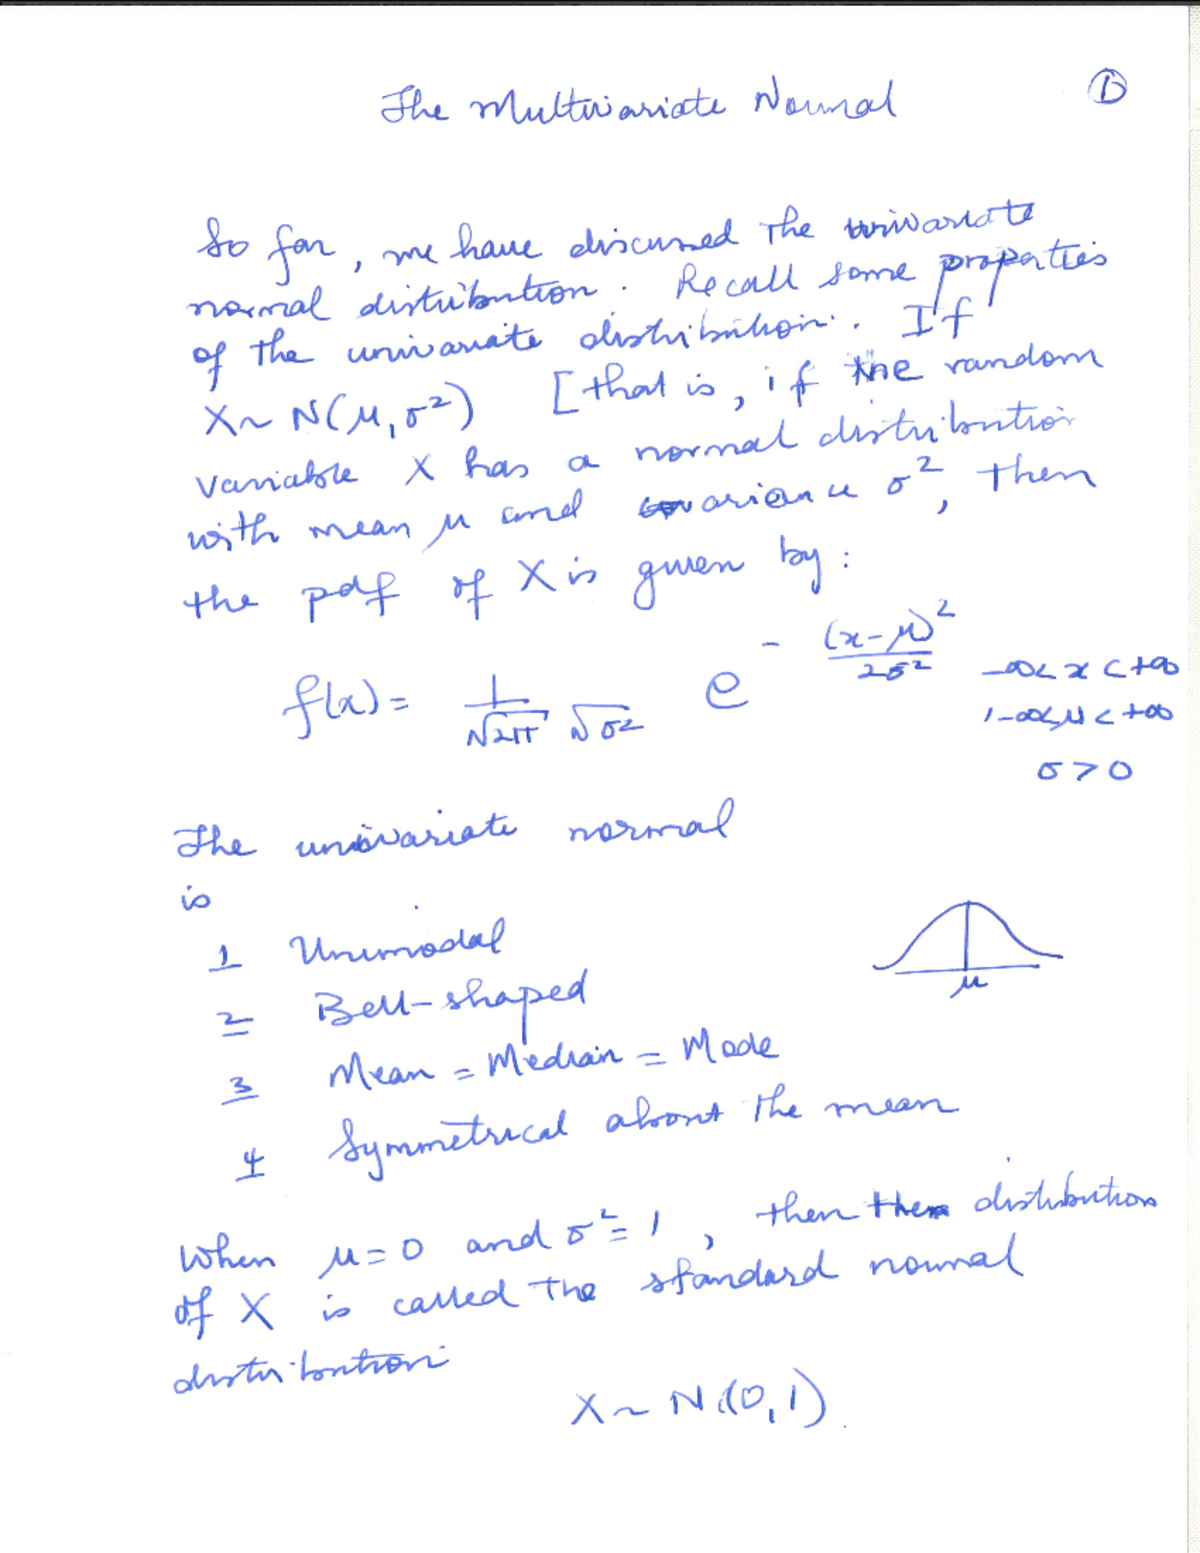 The Multivariate Normal
①
So far, we have discussed the univariate
normal distribution. Recall some properties
of the univariate distribution. If
X ~ N(μ, σ²) [that is, if the random
variable X has a normal distribution
with mean μ and variance σ², then
the pdf of X is given by:
f(x) = 1/(√2π √σ²) e^-(x-μ)²/2σ²
-∞ < x < +∞
1-∞ < μ < +∞
σ > 0
The univariate normal
is
1 Unimodal
2 Bell-shaped
μ
3 Mean = Median = Mode
4 Symmetrical about the mean
When μ = 0 and σ² = 1, then the distribution
of X is called the standard normal
distribution
X ~ N(0,1)